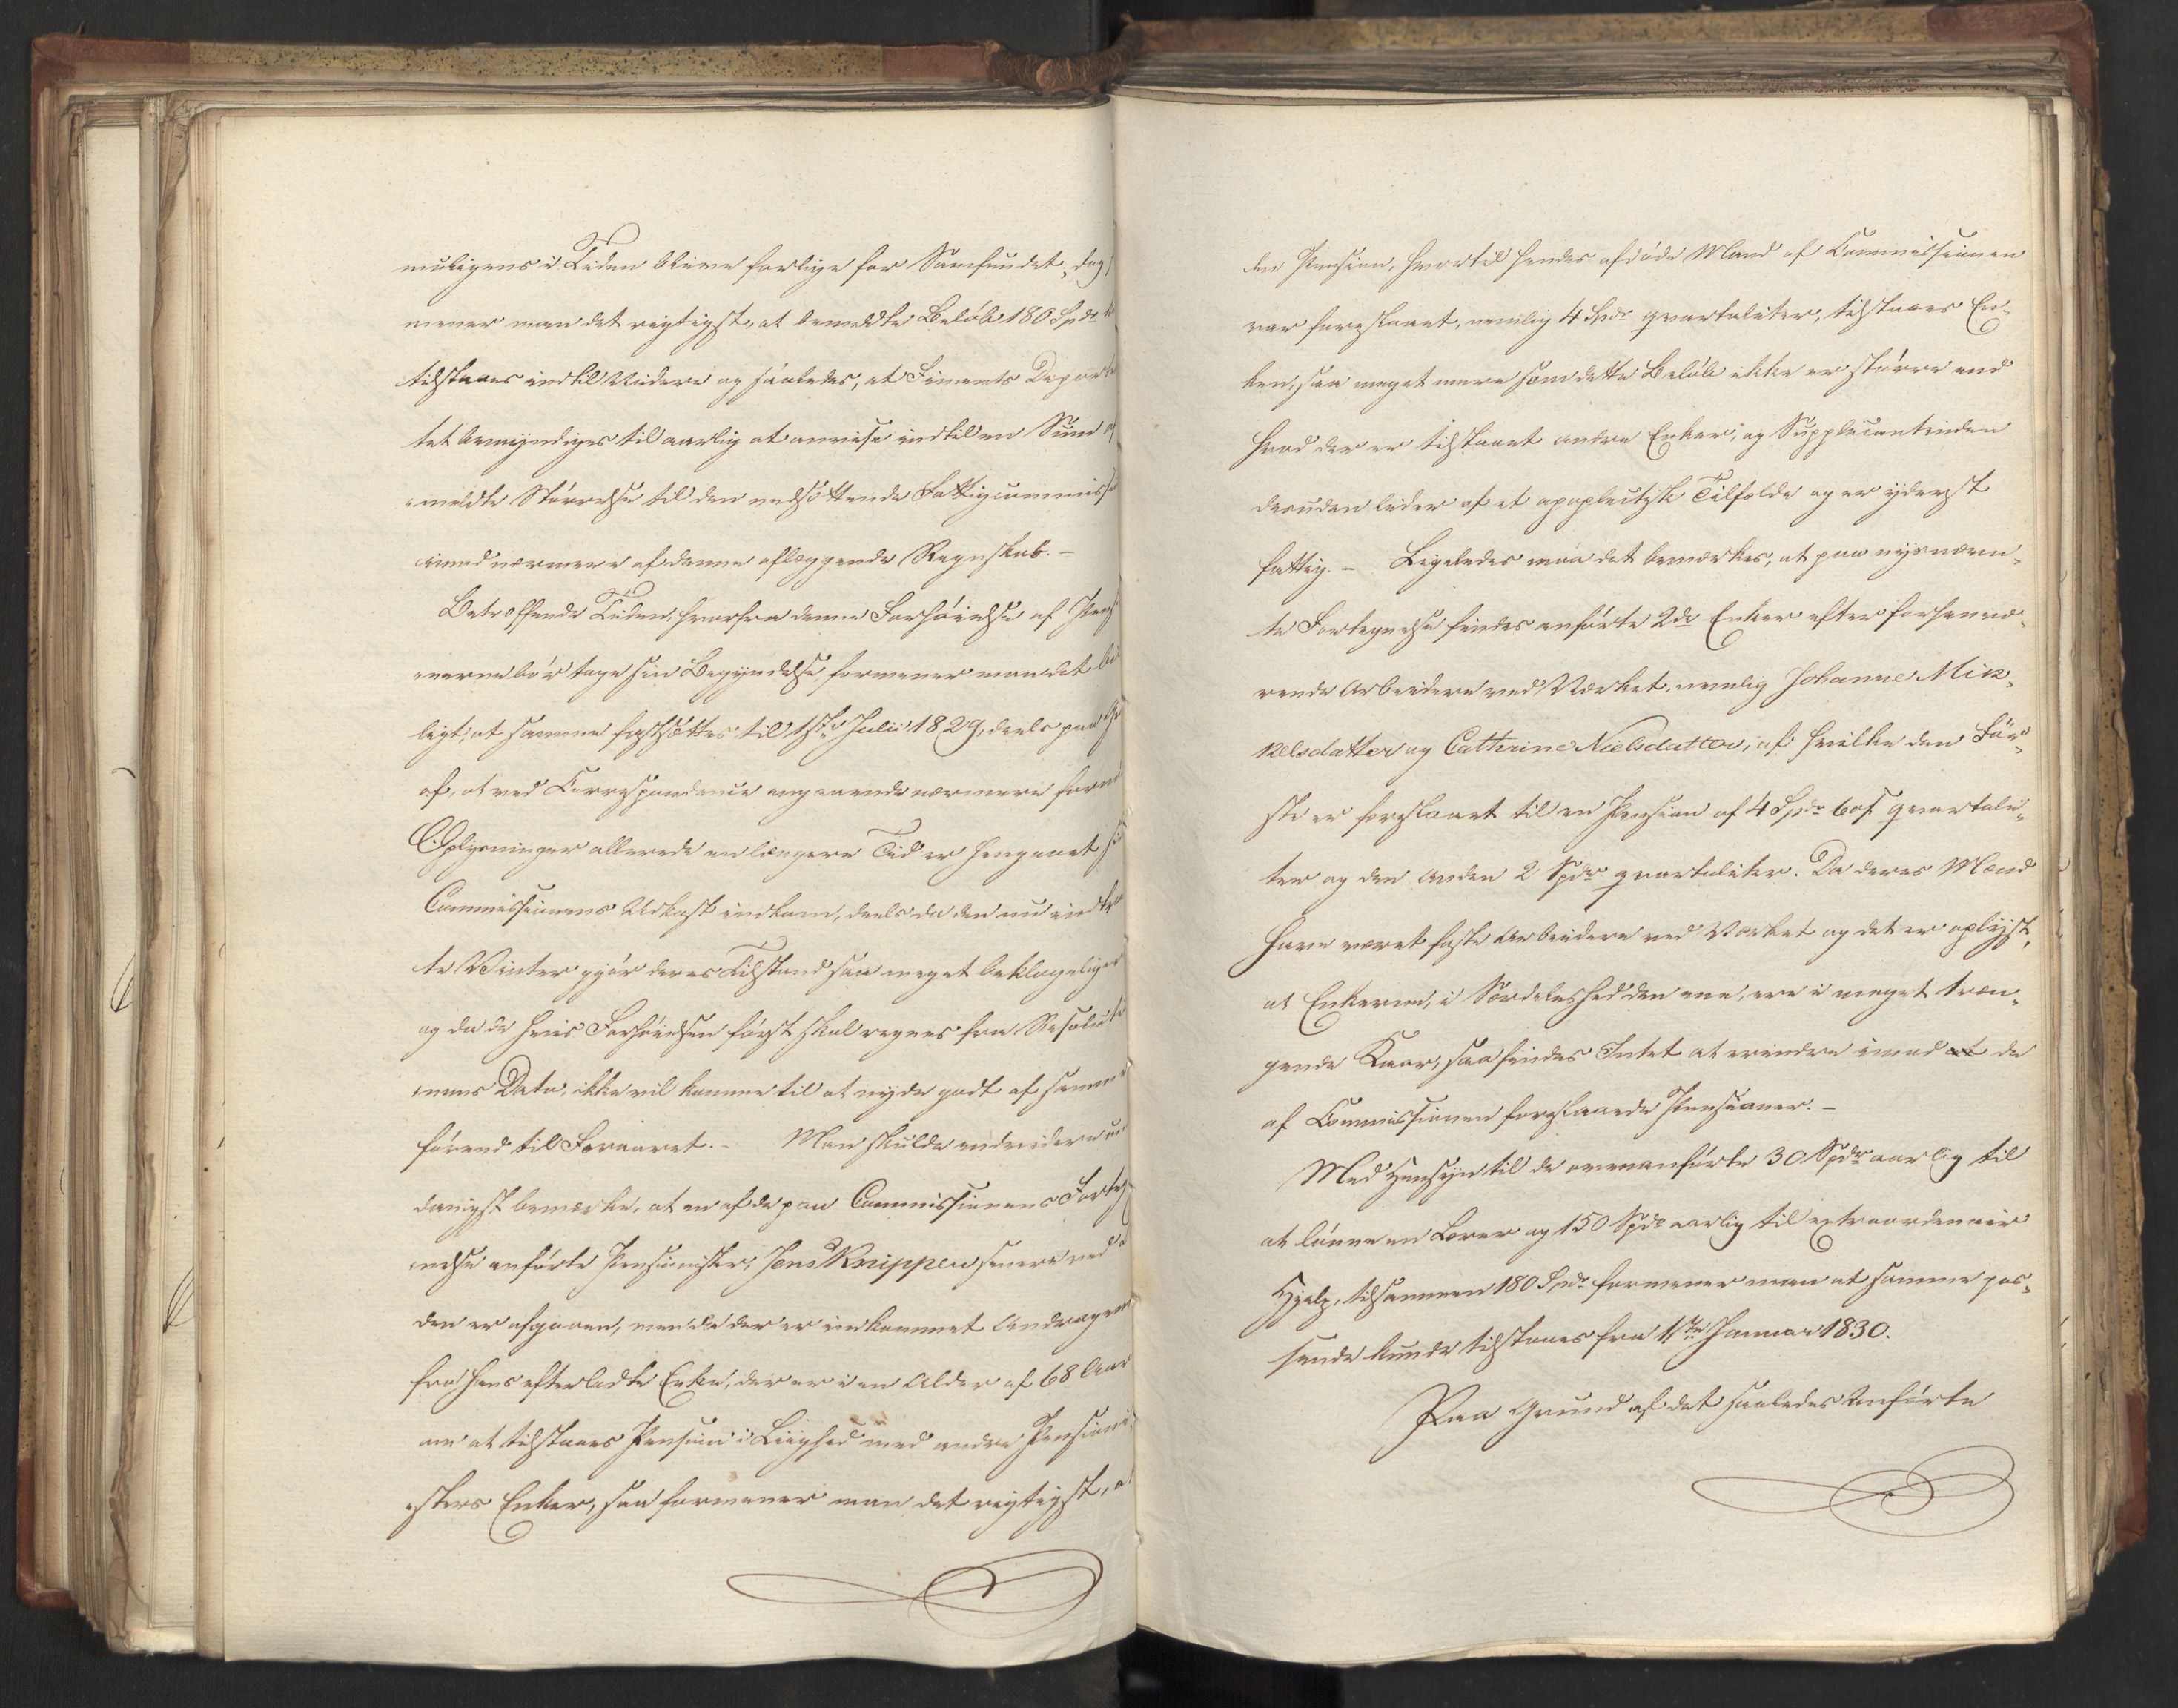 muligens i Tiden blive farlige for Samfundet, dog
mener man det rigtigst, at bemeldte Beløb 180 Spdr
tilstaaes indtil Videre og saaledes, at Finants Departe
tet bemyndiges til aarlig at anvise indtil en Sum af
meldte Størrelse til den nedsættende Fattigcommissi
imod nærmere af denne aflæggende Regnskab. -
Betræffende Tiden, hvorfra denne Forhøielse af Pensi
onerne bør tage sin Begyndelse formener man det bil
ligt, at samme fastsættes til 1ste Julii 1829, deels paa Gr
af, at ved Correspondence angaaende nærmere forn
Oplysninger allerede en længere Tid er hengaaet si
Commissionens Udkast indkom, deels da den nu indtr
te Vinter gjør deres Tilstand saa meget beklageliger
og da de hvis Forhøielsen først skal regnes fra Resoluti
onens Dato, ikke vil komme til at nyde godt af samme
førend til Foraaret. - Man skulde endvidere un
danigst bemærke, at en af de paa Commissionens Forteg
nelse anførte Pensionister, Jens Knippen senere ved
den er afgaaen, men da der er indkommet Andragen
fra hans efterladte Enke, der er i en Alder af 68 Aar
om at tilstaaes Pension i Liighed med andre Pensioni
sters Enker, saa formener man det rigtigst, at
den Pension, hvortil hendes afdøde Mand af Commissionen
var foreslaaet, nemlig 4 Spdr qvartaliter, tilstaaes En-
ken, saa meget mere som dette Beløb ikke er større end
hvad der er tilstaaet andre Enker, og Supplicantinden
desuden lider af et apoplectisk Tilfælde og er yderst
fattig. - Ligeledes maa det bemærkes, at paa nysnævn-
te Fortegnelse findes anførte 2de Enker efter forhenvæ-
rende Arbeidere ved Værket, nemlig Johanne Mik-
kelsdatter og Cathrine Nielsdatter, af hvilke den För-
ste er foreslaaet til en Pension af 4 Spdr 60 s qvartali-
ter og den Anden 2 Spdr qvartaliter. Da deres Mænd
have været faste Arbeidere ved Værket og det er oplyst,
at Enkerne, i Særdeleshed den ene, ere i meget træn-
gende Kaar, saa findes Intet at erindre imod at de
af Commissionen foreslaaede Pensioner. -
Med Hensyn til de ovenanførte 30 Spdr aarlig til
at lønne en Lærer og 150 Spdr aarlig til extraordinair
Hjelp, tilsammen 180 Spdr formener man at samme pas-
sende kunde tilstaaes fra 1ste Januar 1830.
Paa Grund af det saaledes Anførte